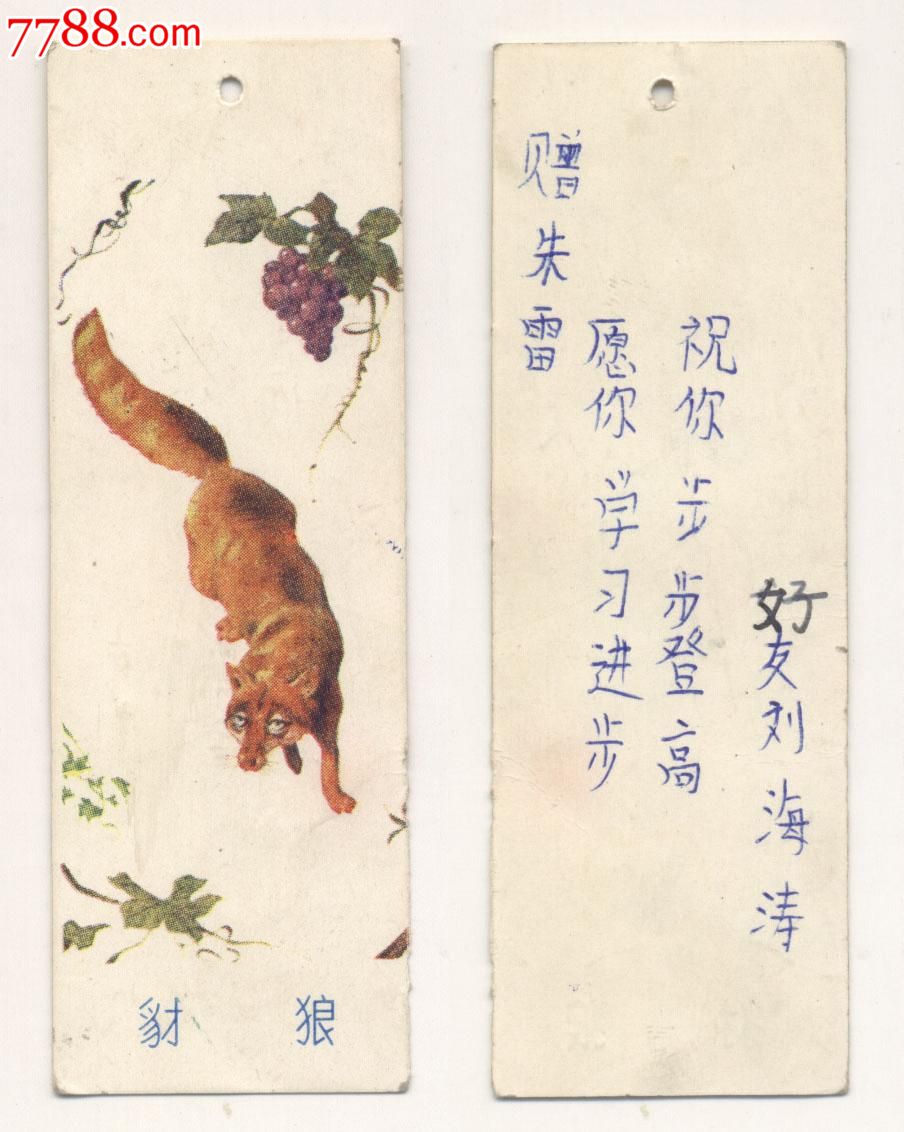 7788.com
豺 狼
赠朱雷
愿你学习进步
祝你步步登高
好友刘海涛